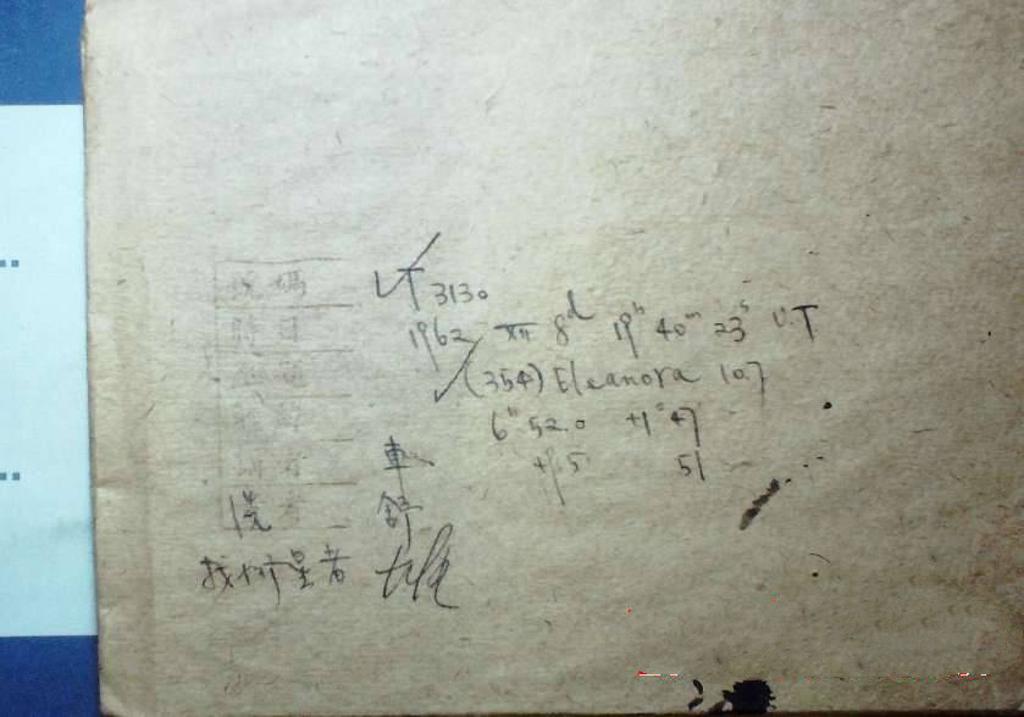 號碼 LT 3130
時日 1962 XII 8d 19h 40m 23s U.T
(354) Eleanora 10.7
6h 52.0 +1° 47
+1.5 51
車
洗 舒
找行星者